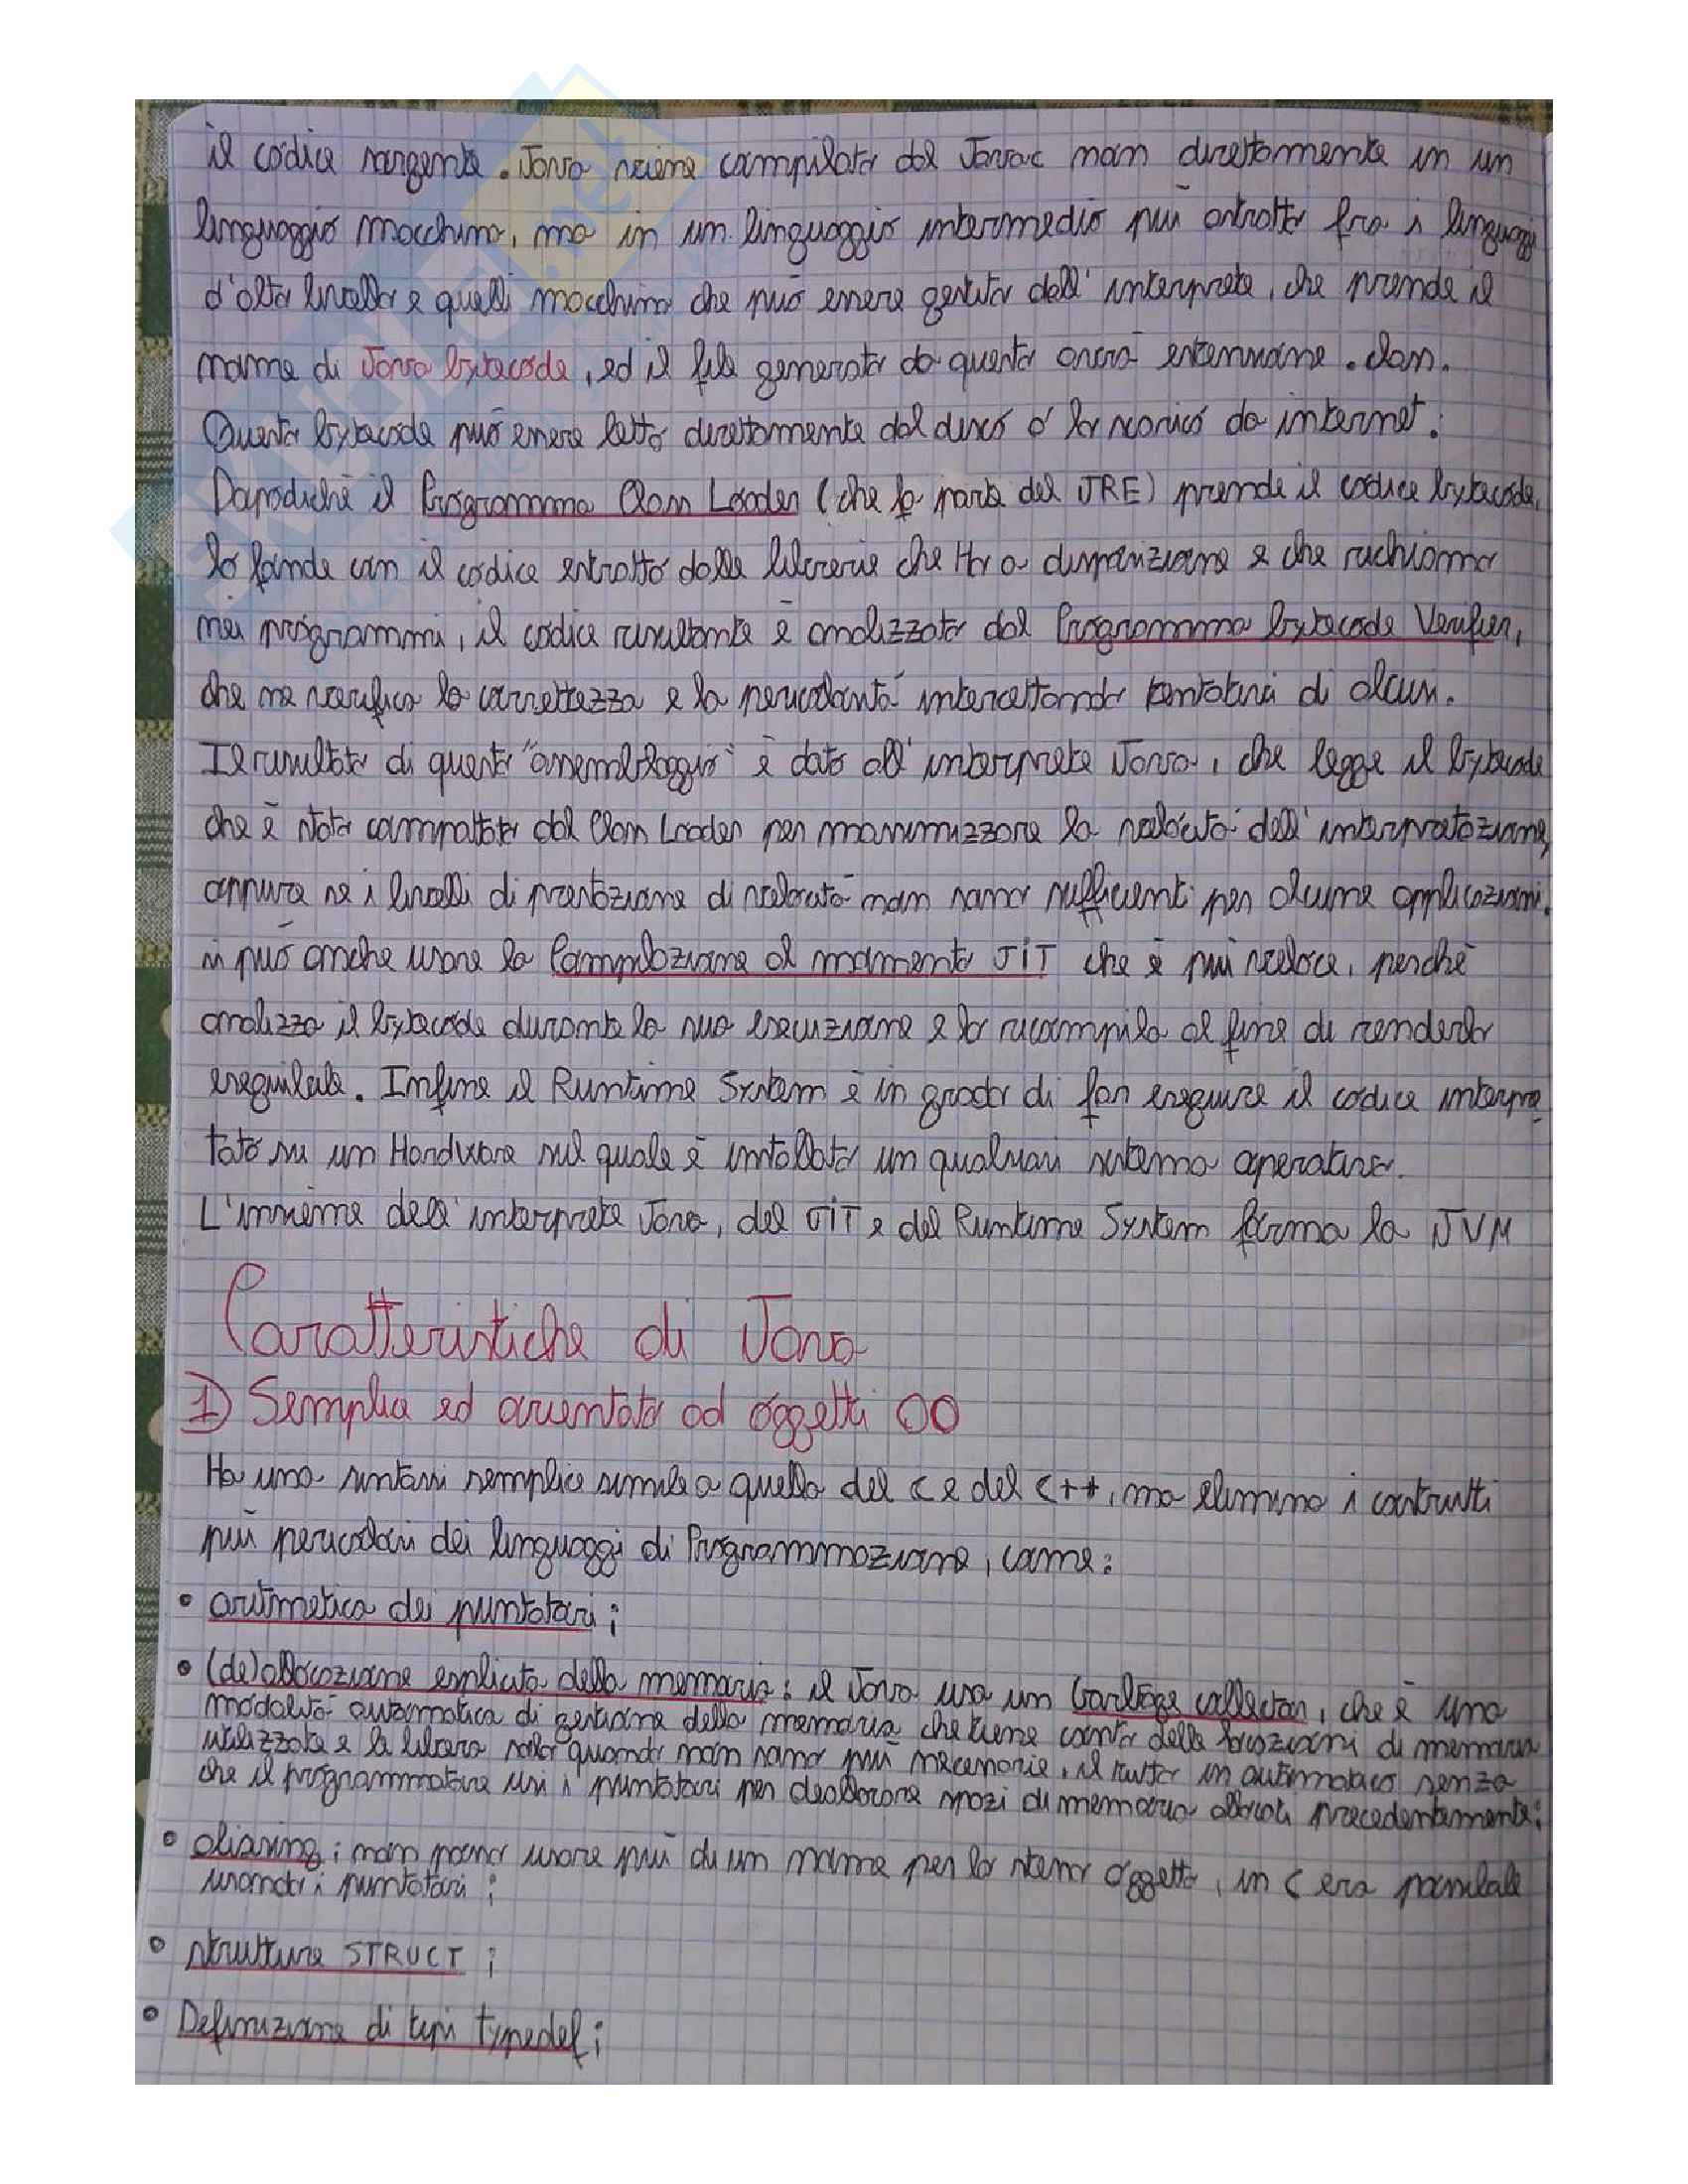 il codice sorgente .Java viene compilato dal Javac non direttamente in un
linguaggio macchina, ma in un linguaggio intermedio più astratto fra i linguaggi
d'alto livello e quelli macchina che può essere gestito dall'interprete, che prende il
nome di Java bytecode, ed il file generato da questo avrà estensione .class.
Questo bytecode può essere letto direttamente dal disco o lo scarico da internet.
Dopodiché il Programma Class Loader (che fa parte del JRE) prende il codice bytecode,
lo fonde con il codice estratto dalle librerie che Ho a disposizione e che richiamo
nei programmi, il codice risultante è analizzato dal Programma bytecode Verifier,
che ne verifica la correttezza e la pericolosità intercettando tentativi di alcuni.
Il risultato di questo "assemblaggio" è dato all'interprete Java, che legge il bytecode
che è stato compattato dal Class Loader per massimizzare la velocità dell'interpretazione,
oppure se i livelli di prestazione di velocità non sono sufficienti per alcune applicazioni.
si può anche usare la Compilazione al momento JiT che è più veloce, perché
analizza il bytecode durante la sua esecuzione e lo ricompila al fine di renderlo
eseguibile. Infine il Runtime System è in grado di far eseguire il codice interpre
tato su un Hardware sul quale è installato un qualsiasi sistema operativo.
L'insieme dell'interprete Java, del JiT e del Runtime System forma la JVM
Caratteristiche di Java
1) Semplice ed orientato ad oggetti OO
Ha una sintassi semplice simile a quella del C e del C++, ma elimina i costrutti
più pericolosi dei linguaggi di Programmazione, come:
• aritmetica dei puntatori;
• (de)allocazione esplicita della memoria: il Java usa un Garbage collector, che è una
modalità automatica di gestione della memoria che tiene conto delle locazioni di memoria
utilizzate e la libera solo quando non sono più necessarie, il tutto in automatico senza
che il programmatore usi i puntatori per deallocare spazi di memoria allocati precedentemente;
• aliasing; non posso usare più di un nome per lo stesso oggetto, in C era possibile
usando i puntatori;
• strutture STRUCT;
• Definizione di tipi typedef;